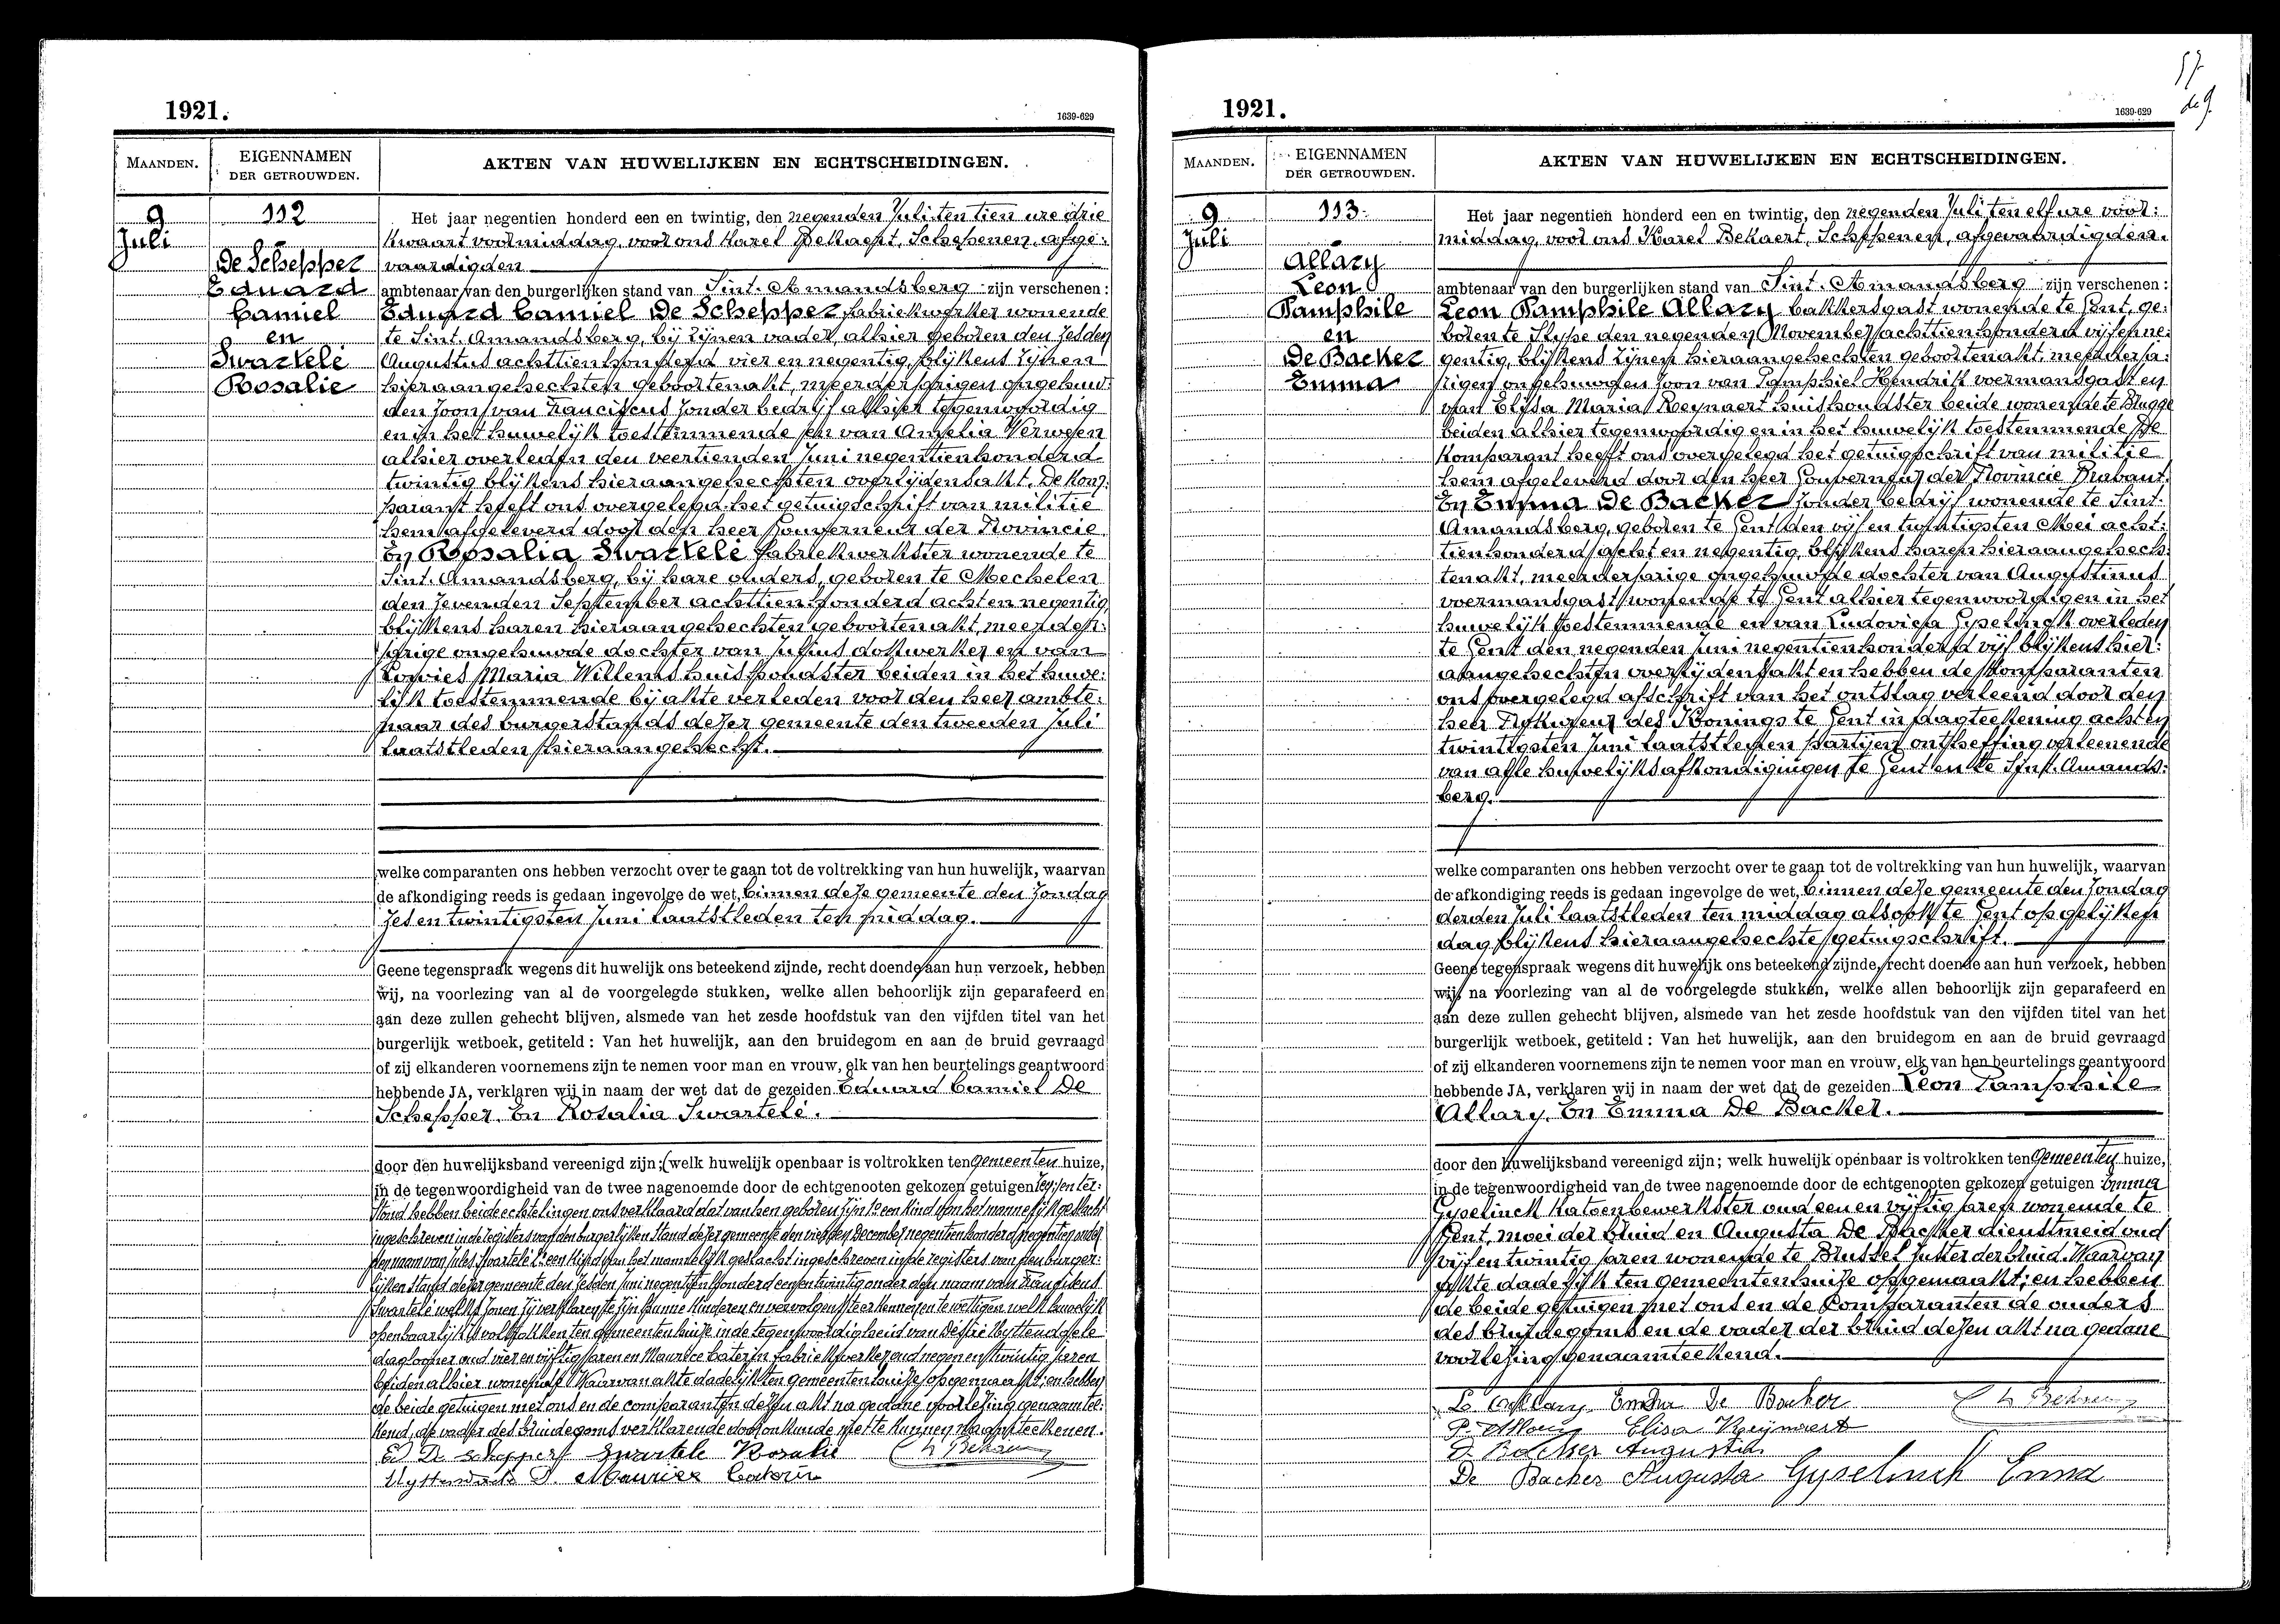 1921.
1639-629
MAANDEN.
EIGENNAMEN
DER GETROUWDEN.
AKTEN VAN HUWELIJKEN EN ECHTSCHEIDINGEN.
9
Juli
112
De Schepper
Eduard
Camiel
en
Swartelé
Rosalie
Het jaar negentien honderd een en twintig, den negenden Juli ten tien ure drie
kwaart voormiddag, voor ons Karel Bekaert, Schepenen, afge:
vaardigden
ambtenaar van den burgerlijken stand van Sint. Amandsberg zijn verschenen:
Eduard Camiel De Schepper fabriekwerker wonende
te Sint. Amandsberg, bij zijnen vader, alhier geboren den zesden
Augustus achttienhonderd vier en negentig, blijkens zijnen
hieraangehechten geboortenakt, meerderjarigen ongehuw:
den zoon van Franciscus zonder bedrijf alhier tegenwoordig
en in het huwelijk toestemmende en van Amelia Verween
alhier overleden den veertienden Juni negentienhonderd
twintig blijkens hieraangehechten overlijdensakt. De kom:
parant heeft ons overgelegd het getuigschrift van militie
hem afgeleverd door den heer Gouverneur der Provincie
En Rosalia Swartelé fabriekwerkster wonende te
Sint. Amandsberg, bij hare ouders, geboren te Mechelen
den zevenden September achttienhonderd acht en negentig,
blijkens haren hieraangehechten geboortenakt, meerder:
jarige ongehuwde dochter van Julius dokwerker en van
Lowies Maria Willems huishoudster beiden in het huwe:
lijk toestemmende bij akte verleden voor den heer ambte:
naar des burgerstands dezer gemeente den tweeden Juli
laatstleden hieraangehecht.
welke comparanten ons hebben verzocht over te gaan tot de voltrekking van hun huwelijk, waarvan
de afkondiging reeds is gedaan ingevolge de wet, binnen deze gemeente den Zondag
zes en twintigsten Juni laatstleden ten middag.
Geene tegenspraak wegens dit huwelijk ons beteekend zijnde, recht doende aan hun verzoek, hebben
wij, na voorlezing van al de voorgelegde stukken, welke allen behoorlijk zijn geparafeerd en
aan deze zullen gehecht blijven, alsmede van het zesde hoofdstuk van den vijfden titel van het
burgerlijk wetboek, getiteld: Van het huwelijk, aan den bruidegom en aan de bruid gevraagd
of zij elkanderen voornemens zijn te nemen voor man en vrouw, elk van hen beurtelings geantwoord
hebbende JA, verklaren wij in naam der wet dat de gezeiden Eduard Camiel De
Schepper. En Rosalia Swartelé.
door den huwelijksband vereenigd zijn; (welk huwelijk openbaar is voltrokken ten Gemeenten huize,
in de tegenwoordigheid van de twee nagenoemde door de echtgenooten gekozen getuigen
stond hebben beide echtelingen ons verklaard dat van hen geboren zijn 1° een kind van het mannelijk geslacht
ingeschreven in de registers van den burgerlijken stand dezer gemeente den December negentienhonderd negentien onder
den naam van Jules Swartelé 2° een kind van het mannelijk geslacht ingeschreven in de registers van den burger:
lijken stand dezer gemeente den zesden Juni negentienhonderd een en twintig onder den naam van
Swartelé welke zonen zij verklaren te zijn hunne kinderen en vervolgens te erkennen en te wettigen welk huwelijk
openbaarlijk is voltrokken ten gemeentenhuize in de tegenwoordigheid van Désiré
daglooner oud vier en vijftig jaren en Maurice Caterin fabriekwerker oud negen en twintig jaren
beiden alhier wonende. Waarvan akte dadelijk ten gemeentenhuize opgemaakt; en hebben
de beide getuigen met ons en de comparanten dezen akt na gedane voorlezing genaamtee:
kend, de vader des bruidegoms verklarende door onkunde niet te kunnen naamteekenen.
Ed De Schepper Swartele Rosalie
D. Maurice Caterin
57
1921.
1639-629
MAANDEN.
EIGENNAMEN
DER GETROUWDEN.
AKTEN VAN HUWELIJKEN EN ECHTSCHEIDINGEN.
9
Juli
113.
Allary
Leon
Pamphile
en
De Backer
Emma
Het jaar negentien honderd een en twintig, den negenden Juli ten elf ure voor:
middag, voor ons Karel Bekaert, Schepenen, afgevaardigden.
ambtenaar van den burgerlijken stand van Sint. Amandsberg zijn verschenen:
Leon Pamphile Allary bakkersgast wonende te Gent, ge:
boren te Slype den negenden November achttienhonderd vijf en ne:
gentig, blijkens zijnen hieraangehechten geboortenakt, meerderja:
rigen ongehuwden zoon van Pamphiel Hendrik voermansgast en
van Elisa Maria Reynaert huishoudster beide wonende te Brugge
beiden alhier tegenwoordig en in het huwelijk toestemmende De
komparant heeft ons overgelegd het getuigschrift van militie
hem afgeleverd door den heer Gouverneur der Provincie Brabant.
En Emma De Backer zonder bedrijf wonende te Sint.
Amandsberg, geboren te Gent den vijf en twintigsten Mei acht:
tienhonderd acht en negentig, blijkens haren hieraangehech:
tenakt, meerderjarige ongehuwde dochter van Augustinus
voermansgast wonende te Gent alhier tegenwoordig en in het
huwelijk toestemmende en van Ludovica Gyselinck overleden
te Gent den negenden Juni negentienhonderd vijf blijkens hier:
aangehechten overlijdensakt en hebben de komparanten
ons overgelegd afschrift van het ontslag verleend door den
heer Prokureur des Konings te Gent in dagteekening acht en
twintigsten Juni laatstleden partijen ontheffing verleenende
van alle huwelijksafkondigingen te Gent en te Sint. Amands:
berg.
welke comparanten ons hebben verzocht over te gaan tot de voltrekking van hun huwelijk, waarvan
de afkondiging reeds is gedaan ingevolge de wet, binnen deze gemeente den Zondag
derden Juli laatstleden ten middag alsook te Gent op gelijken
dag blijkens hieraangehechte getuigschrift.
Geene tegenspraak wegens dit huwelijk ons beteekend zijnde, recht doende aan hun verzoek, hebben
wij, na voorlezing van al de voorgelegde stukken, welke allen behoorlijk zijn geparafeerd en
aan deze zullen gehecht blijven, alsmede van het zesde hoofdstuk van den vijfden titel van het
burgerlijk wetboek, getiteld: Van het huwelijk, aan den bruidegom en aan de bruid gevraagd
of zij elkanderen voornemens zijn te nemen voor man en vrouw, elk van hen beurtelings geantwoord
hebbende JA, verklaren wij in naam der wet dat de gezeiden Leon Pamphile
Allary. En Emma De Backer.
door den huwelijksband vereenigd zijn; welk huwelijk openbaar is voltrokken ten Gemeenten huize,
in de tegenwoordigheid van de twee nagenoemde door de echtgenooten gekozen getuigen Emma
Gyselinck katoenbewerkster oud een en vijftig jaren wonende te
Gent, moei der bruid en Augusta De Backer dienstmeid oud
vijf en twintig jaren wonende te Brussel zuster der bruid. Waarvan
akte dadelijk ten gemeentenhuize opgemaakt; en hebben
de beide getuigen met ons en de Comparanten de ouders
des bruidegoms en de vader der bruid dezen akt na gedane
voorlezing genaamteekend.
L. Allary Emma De Backer
P. Allary Elisa Reijnaert
D Backer Augustin
De Backer Augusta Gyselinck Emma